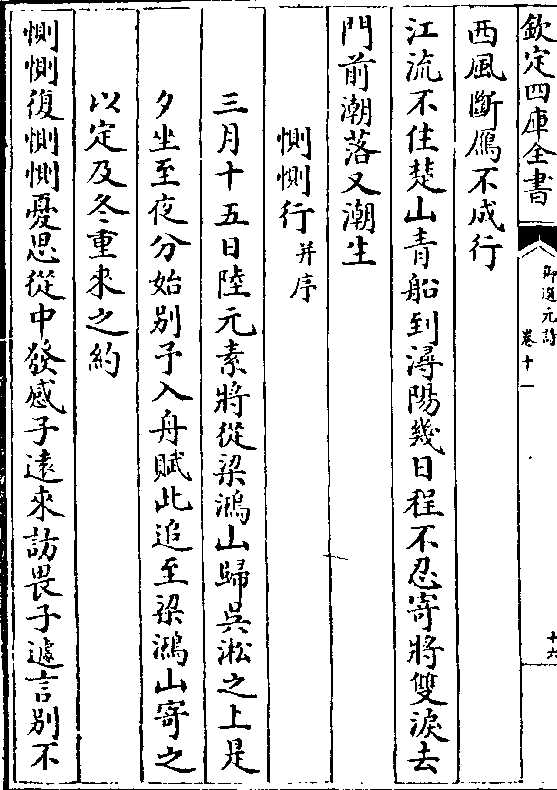 欽定四庫全書
御選元詩
卷十一
十六
西風斷鴈不成行
江流不住楚山青船到潯陽幾日程不忍寄將雙淚去
門前潮落又潮生
惻惻行并序
三月十五日陸元素將從梁鴻山歸吳淞之上是
夕坐至夜分始别予入舟賦此追至梁鴻山寄之
以定及冬重來之約
惻惻復惻惻憂思從中發感子遠來訪畏子遽言别不